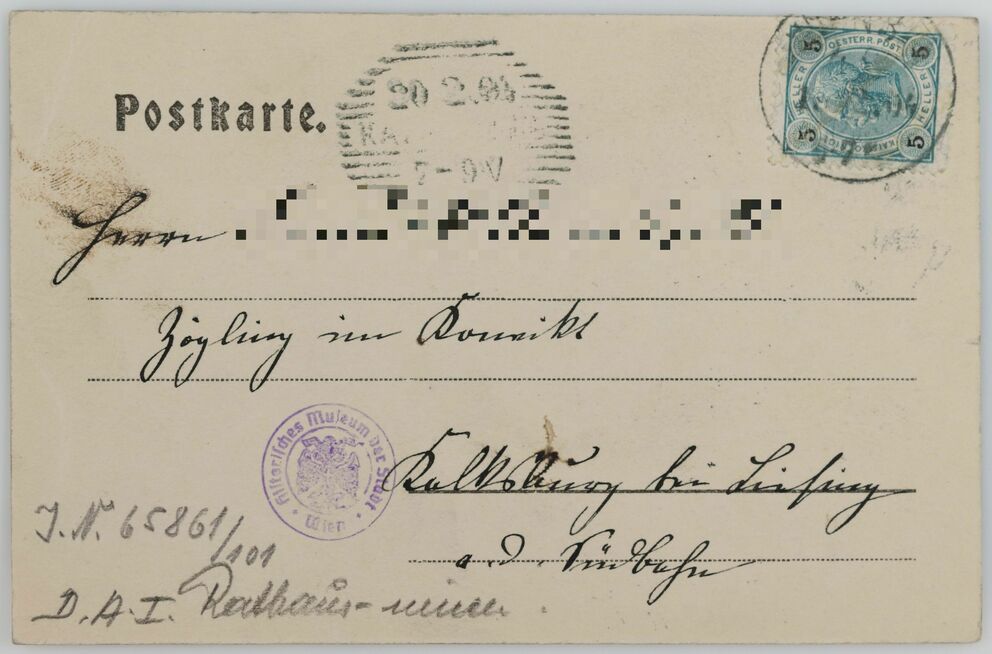 Postkarte.
20 2.04
7-9V
5 OESTERR. POST 5
HELLER HELLER
5 5
Herrn
Zögling im Konvikt
Historisches Museum der Stadt Wien
Kalksburg bei Liesing
a. d. Südbahn
J.N. 65861/101
D.A.I. Rathaus-